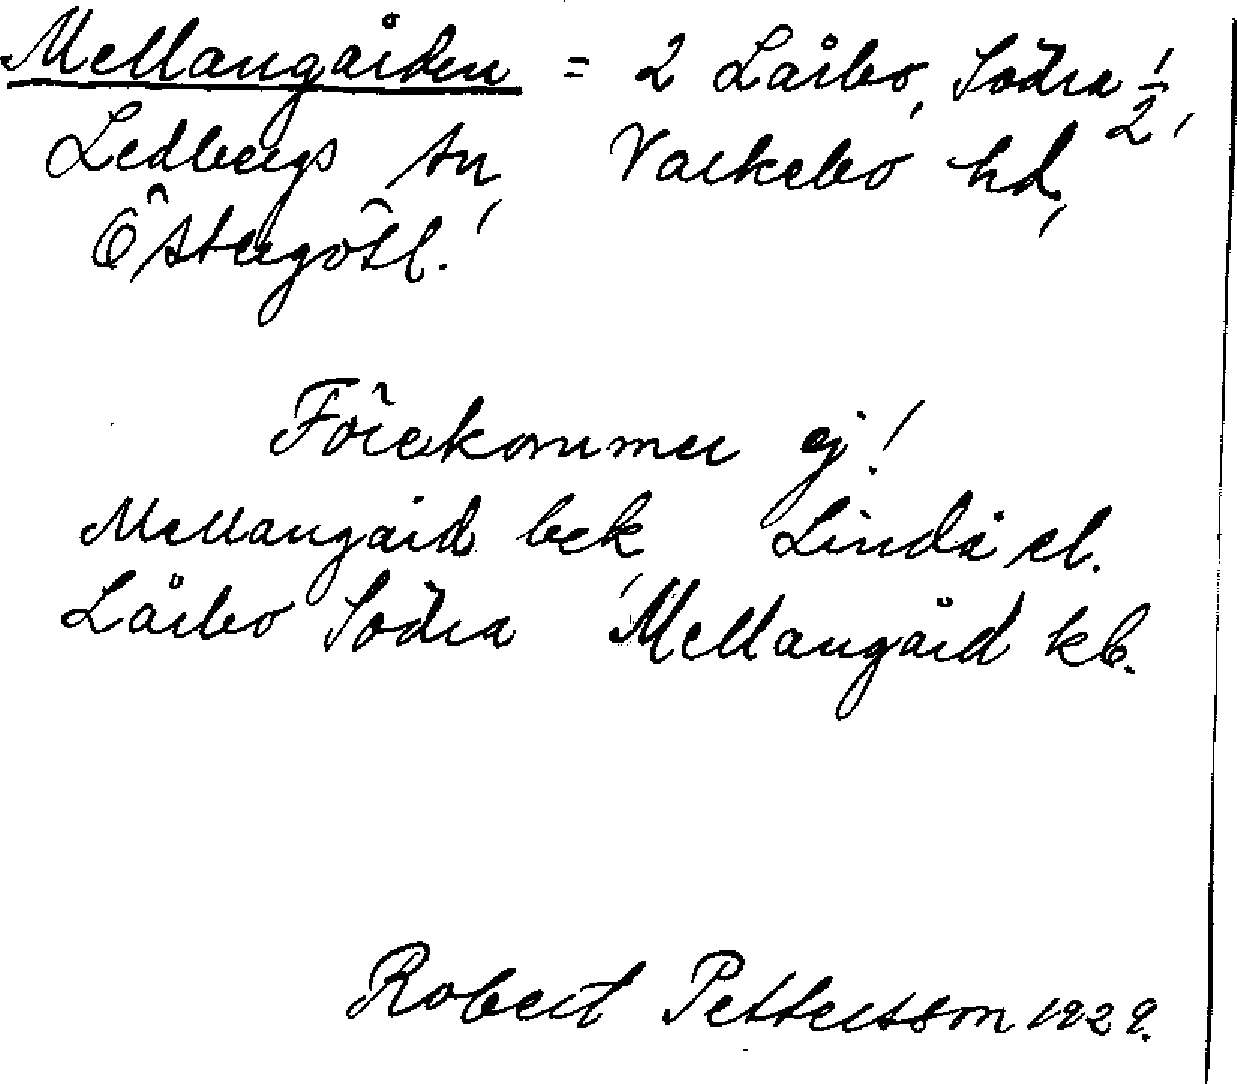 Mellangården = 2 Lårbo, Södra 1/2,
Ledbergs sn, Valkebo hd,
Östergötl.
Förekommer ej!
Mellangård bek, Lindå el.
Lårbo Södra Mellangård kb.
Robert Pettersson 1929.